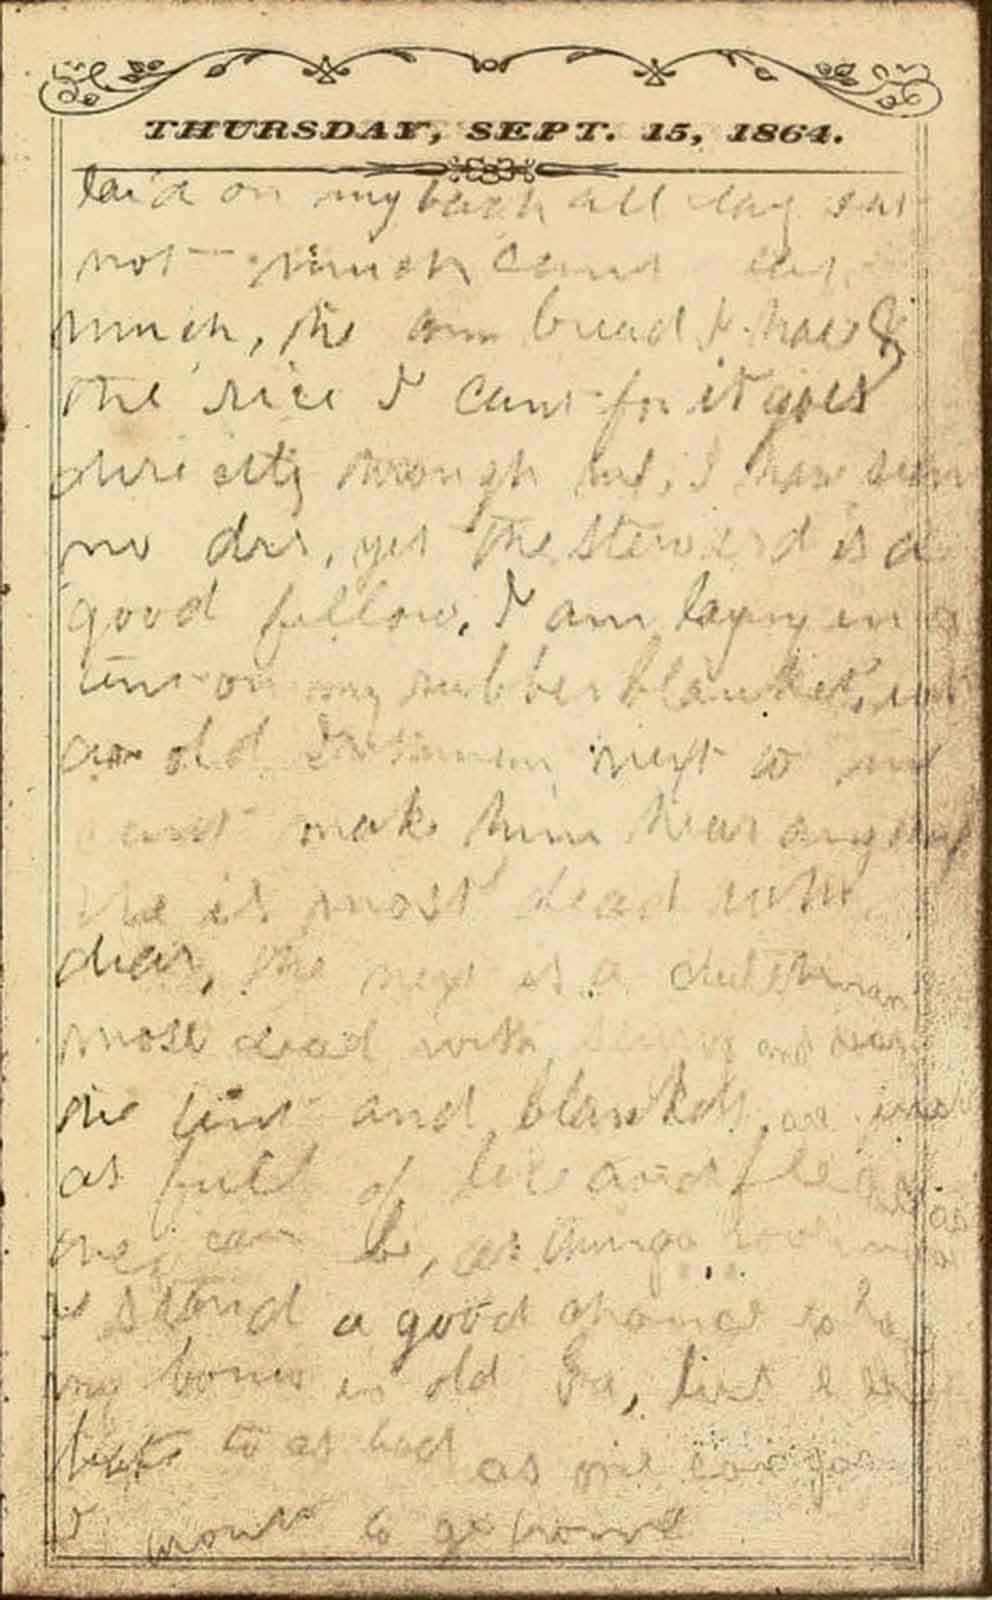 THURSDAY, SEPT. 15, 1864.
laid on my back all day eat
not much cant eat
much, the corn bread I hate &
the rice I cant for it goes
directly through me, I have seen
no drs, yet the steward is a
good fellow, I am laying in a
tent on my rubber blanket,
an old next to me
cant make him hear anything
he is most dead with
diar, the next is a dutchman
most dead with and diar
the tent and blankets are just
as full of lice and fleas as
they can be, as things look now
I stand a good chance to lay
my bones in old Ga, but I
to as bad as one can for
I want to go home